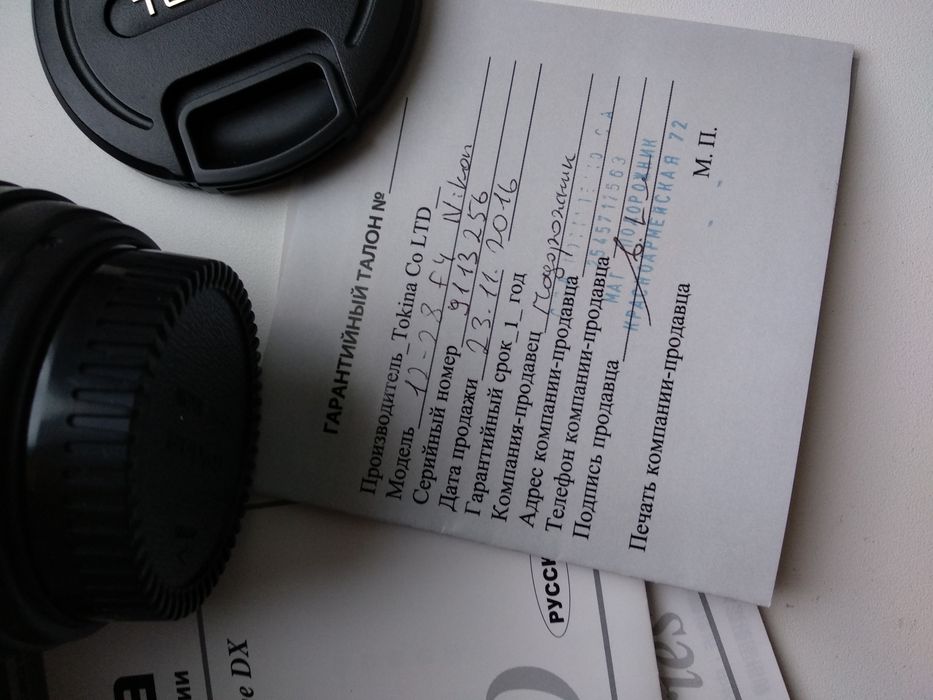 ГАРАНТИЙНЫЙ ТАЛОН №
Производитель Tokina Co LTD
Модель 12-28 f4 Nikon
Серийный номер 9113256
Дата продажи 23.11.2016
Гарантийный срок 1 год
Компания-продавец Подорожник
Адрес компании-продавца
Телефон компании-продавца
Подпись продавца
Печать компании-продавца
М. П.
МАГ ПОДОРОЖНИК
КРАСНОАРМЕЙСКАЯ 72
РУССК
e DX